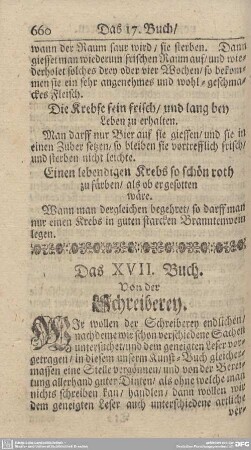 660 Das 17. Buch/
wann der Raum saur wird/ sie sterben. Dann
giesset man wiederum frischen Raum auf/ und wie-
derholet solches drey oder vier Wochen/ so bekom-
men sie ein sehr angenehmes und wohl-geschma-
ckes Fleisch.
Die Krebse fein frisch/ und lang bey
Leben zu erhalten.
Man darff nur Bier auf sie giessen/ und sie in
einen Zuber setzen/ so bleiben sie vortrefflich frisch/
und sterben nicht leichte.
Einen lebendigen Krebs so schön roth
zu färben/ als ob er gesotten
wäre.
Wann man dergleichen begehret/ so darff man
nur einen Krebs in guten starcken Branntenwein
legen.
Das XVII. Buch.
Von der
Schreiberey.
WIr wollen der Schreiberey endlichen/
nachdeme wir schon verschiedene Sachen
untersuchet/ und dem geneigten Leser vor-
getragen/ in diesem unserm Kunst-Buch gleicher
massen eine Stelle vergönnen/ und von der Berei-
tung allerhand guter Dinten/ als ohne welche man
nichts schreiben kan/ handlen/ dann wollen wir
dem geneigten Leser auch unterschiedene artliche
ver-